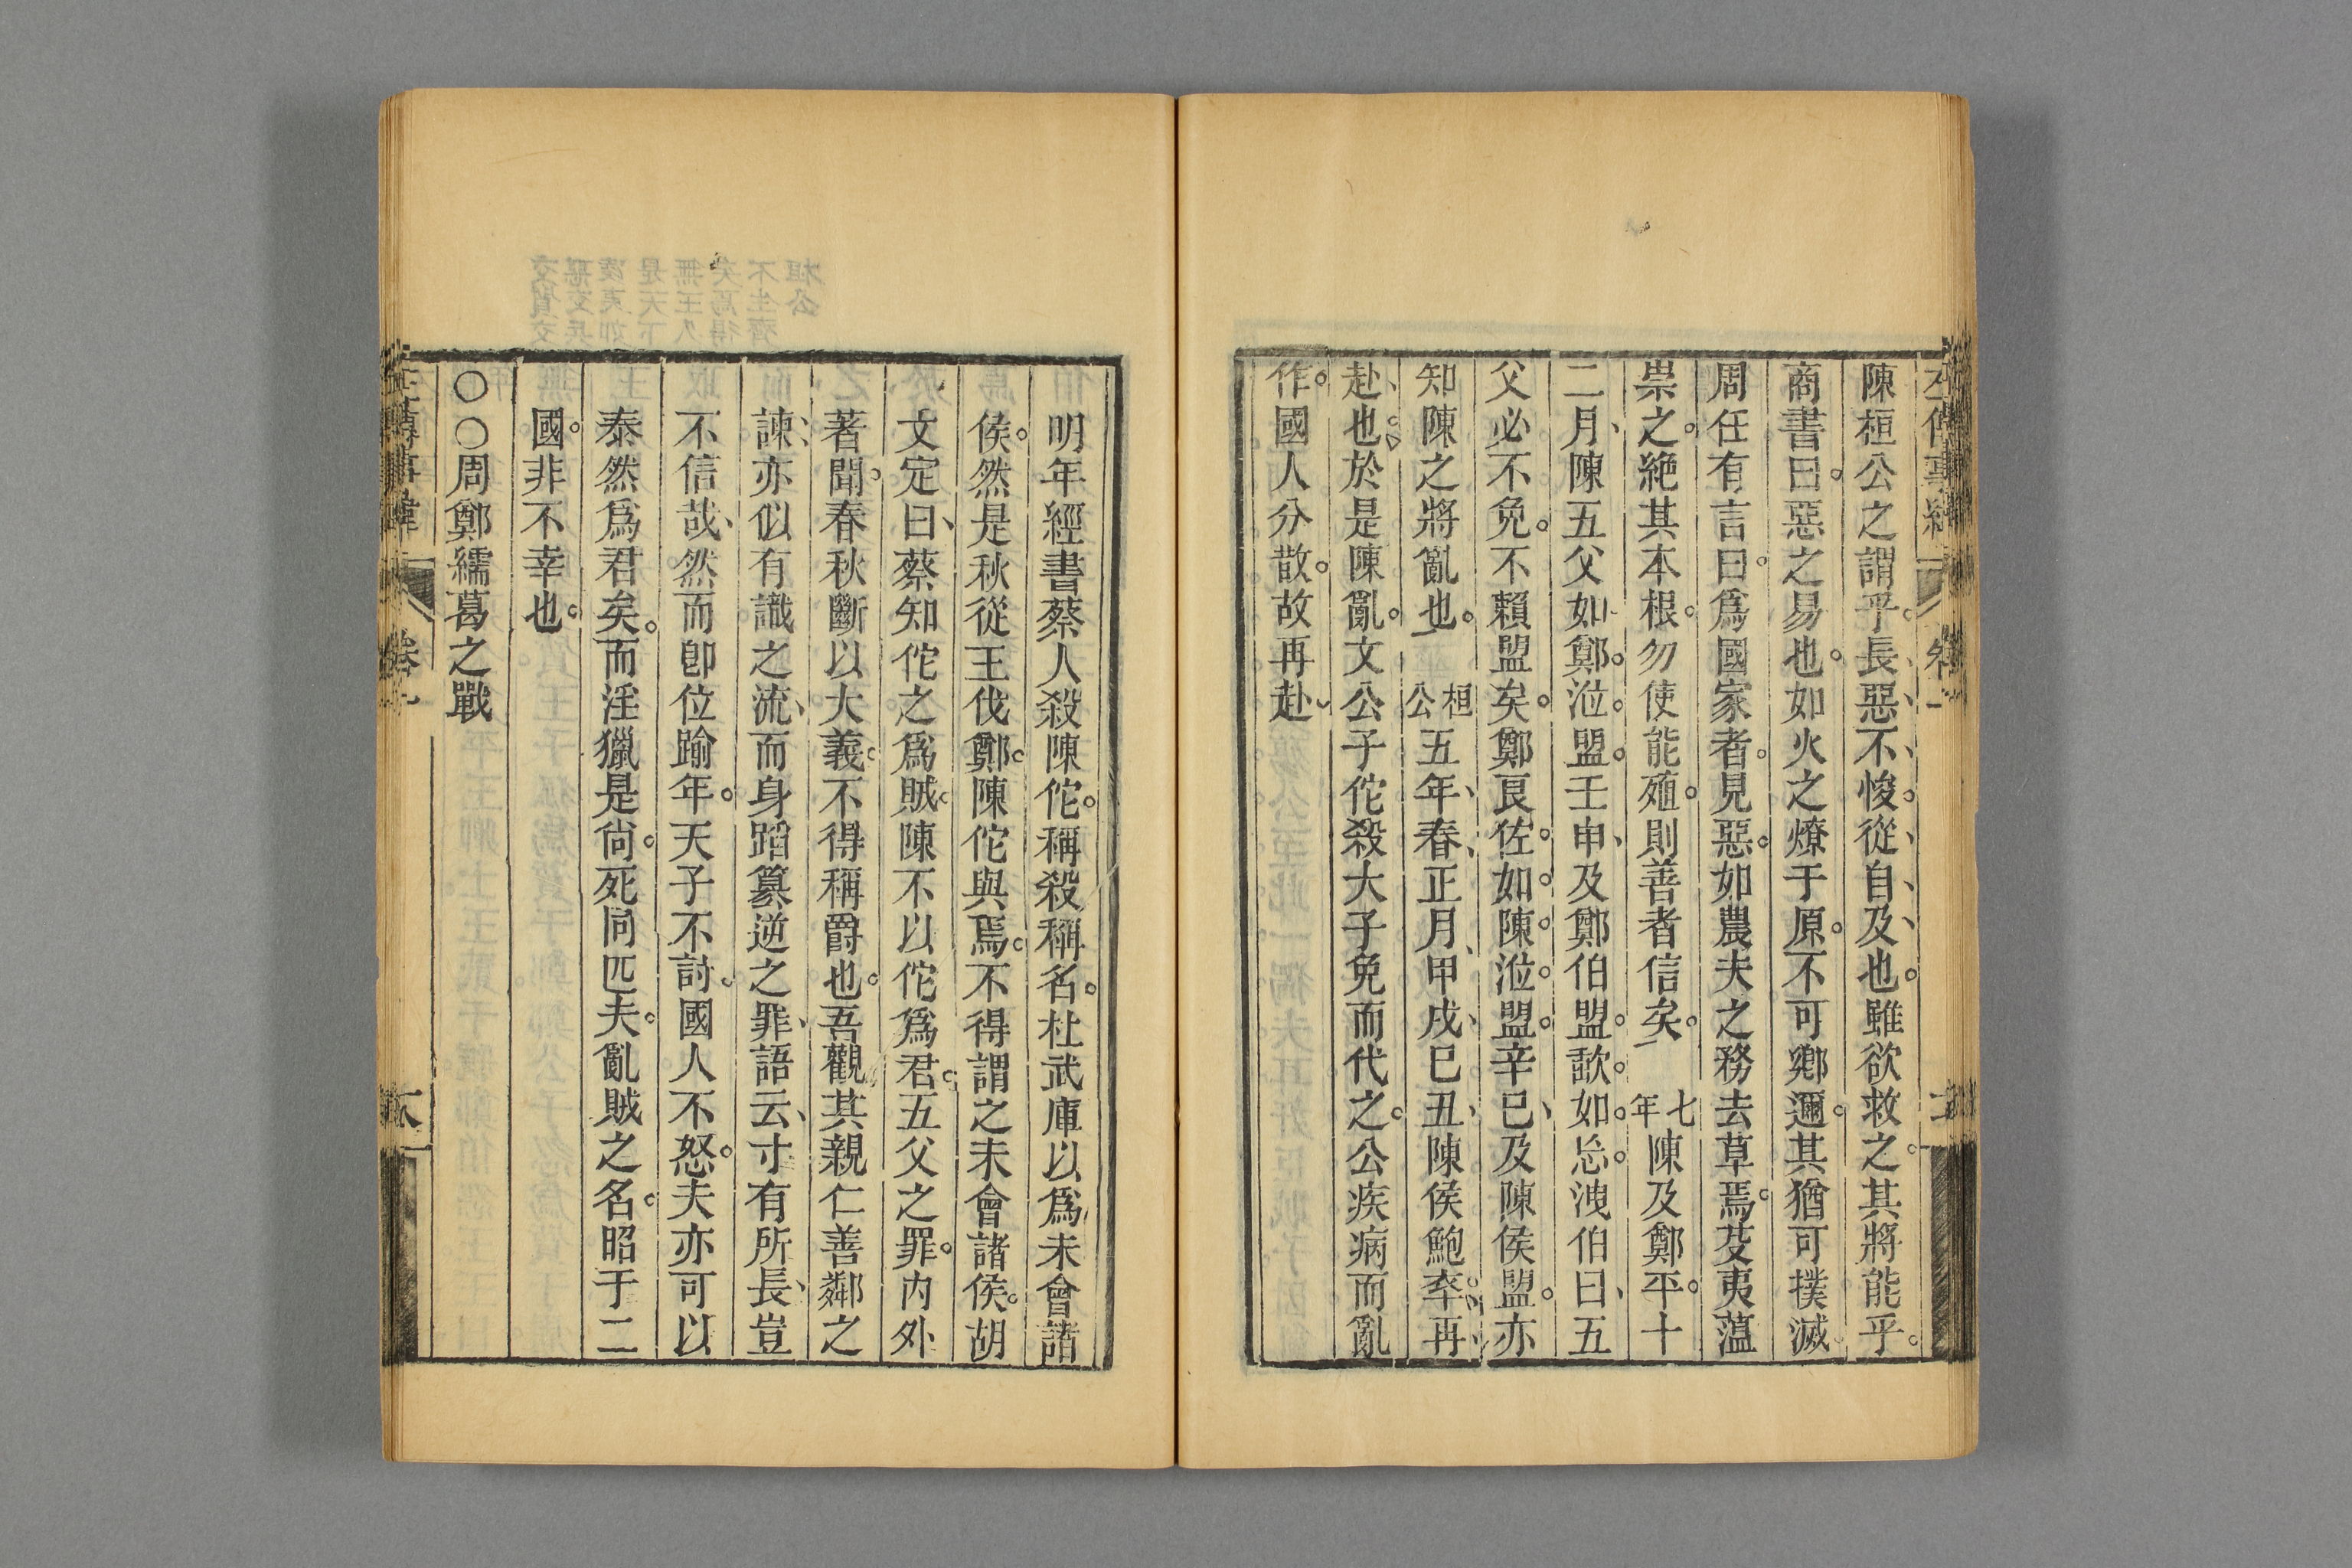 陳桓公之謂乎。長、惡、不、悛。從、自、及、也。雖欲救之。其將能乎。
商書曰。惡之易也。如火之燎于原。不可鄉邇。其猶可撲滅。
周任有言曰。爲國家者。見惡。如農夫之務去草焉。芟夷蕰
崇之。絶其本根。勿使能殖。則善者信矣。七年陳及鄭平。十
二月、陳五父如鄭。涖。盟。壬申、及鄭伯盟。歃。如。忘。洩伯曰、五
父必不免。不賴盟矣。鄭良佐。如。陳。涖。盟。辛巳、及陳侯盟。亦
知陳之將亂也。桓公五年、春、正月、甲戌、巳丑、陳侯鮑卒。再、
赴、也。於是陳亂。文公子佗殺大子免而代之。公疾病而亂
作。國人分散。故再赴、
明年經書蔡人殺陳佗。稱殺稱名。杜武庫以爲未會諸
侯。然是秋從王伐鄭。陳佗與焉。不得謂之未會諸侯。胡
文定曰、蔡知佗之爲賊。陳不以佗爲君。五父之罪。內外
著聞。春秋斷以大義。不得稱爵也。吾觀其親仁善鄰之
諫、亦似有識之流、而身蹈篡逆之罪、語云、寸有所長、豈
不信哉、然而卽位踰年。天子不討。國人不怒。夫亦可以
泰然爲君矣。而淫獵是尙。死同匹夫。亂賊之名。昭于二
國。非不幸也。
〇〇周鄭繻葛之戰
左傳事緯 卷一 八